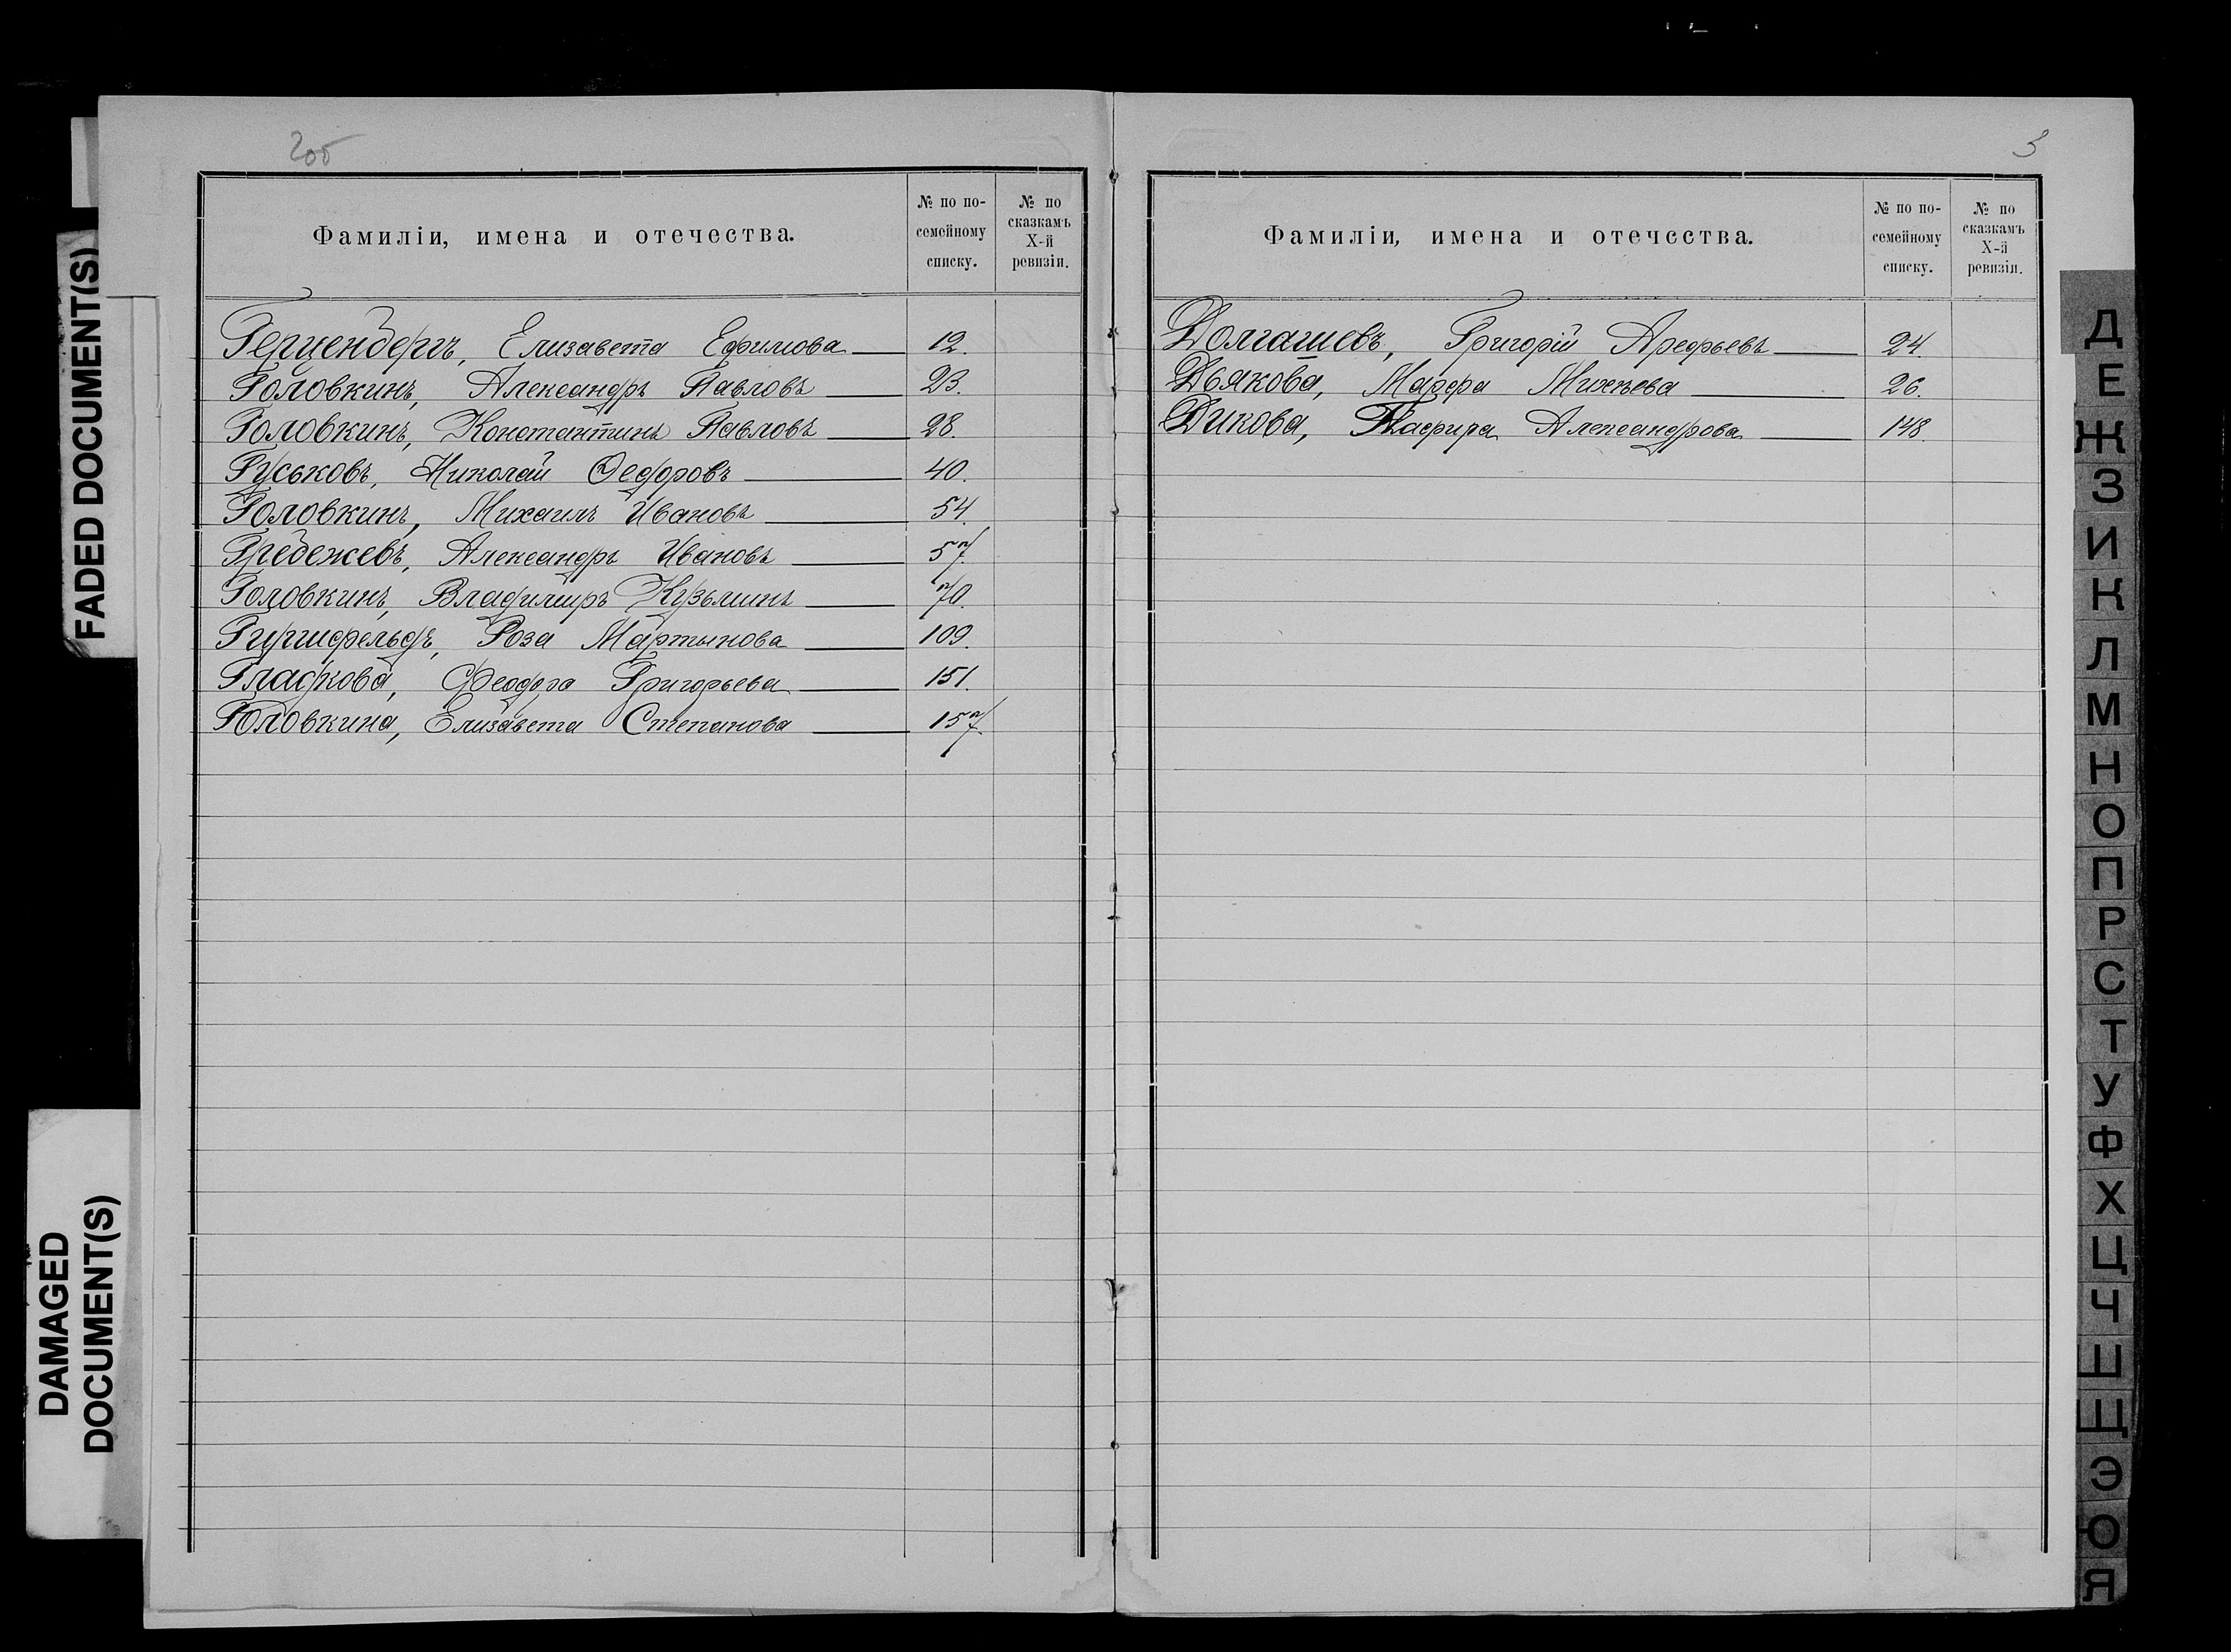 FADED DOCUMENT(S)
DAMAGED
DOCUMENT(S)
Фамиліи, имена и отечества.
№ по по-
семейному
списку.
№ по
сказкамъ
Х-й
ревизіи.
Герценбергъ, Елизавета Ефимова 12.
Головкинъ, Александръ Павловъ 23.
Головкинъ, Константинъ Павловъ 28.
Гуськовъ, Николай Ѳедоровъ 40.
Головкинъ, Михаилъ Ивановъ 54.
Гребежевъ, Александръ Ивановъ 57.
Головкинъ, Владиміръ Кузьминъ 70.
Гиршфельдъ, Роза Мартынова 109.
Гладкова, Феодора Григорьева 151.
Головкина, Елизавета Степанова 157.
3
Фамиліи, имена и отечества.
№ по по-
семейному
списку.
№ по
сказкамъ
Х-й
ревизіи.
Долгашевъ, Григорій Арефьевъ 24.
Дьякова, Марфа Михѣева 26.
Дикова, Александрова 148.
Д
Е
Ж
З
И
К
Л
М
Н
О
П
Р
С
Т
У
Ф
Х
Ц
Ч
Ш
Щ
Э
Ю
Я